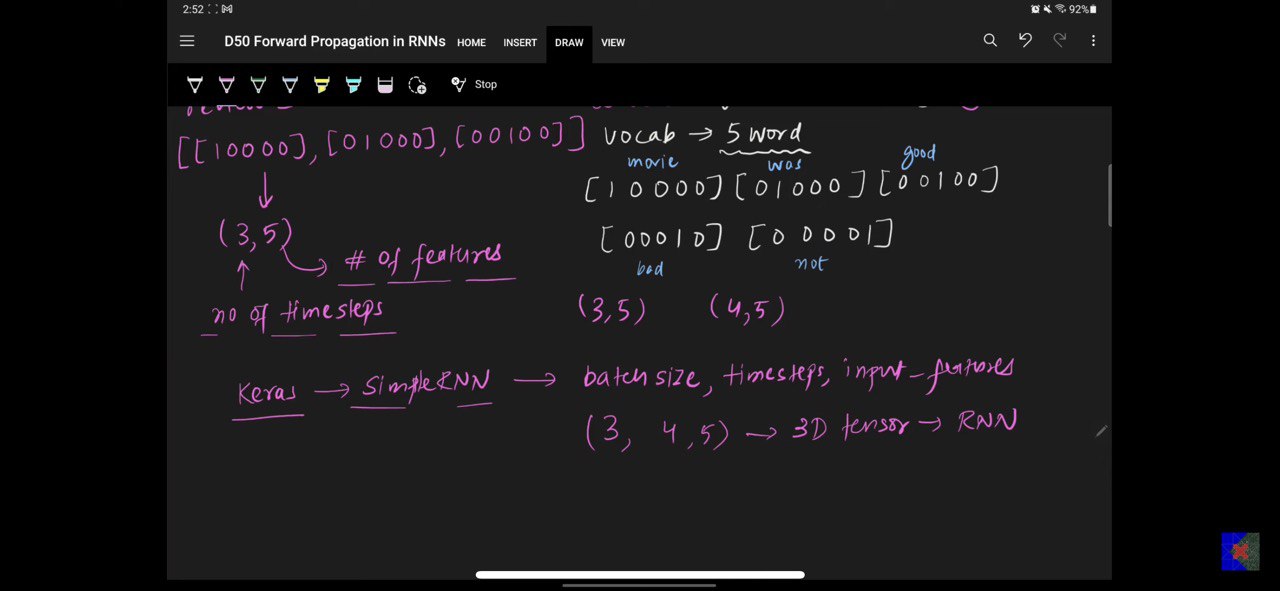 2:52
92%
D50 Forward Propagation in RNNs HOME INSERT DRAW VIEW
Stop
[[10000], [01000], [00100]]
(3,5)
# of features
no of timesteps
vocab → 5 word
movie was good
[10000] [01000] [00100]
[00010] [00001]
bad not
(3,5) (4,5)
Keras → SimpleRNN → batch size, timesteps, input_features
(3, 4,5) → 3D tensor → RNN